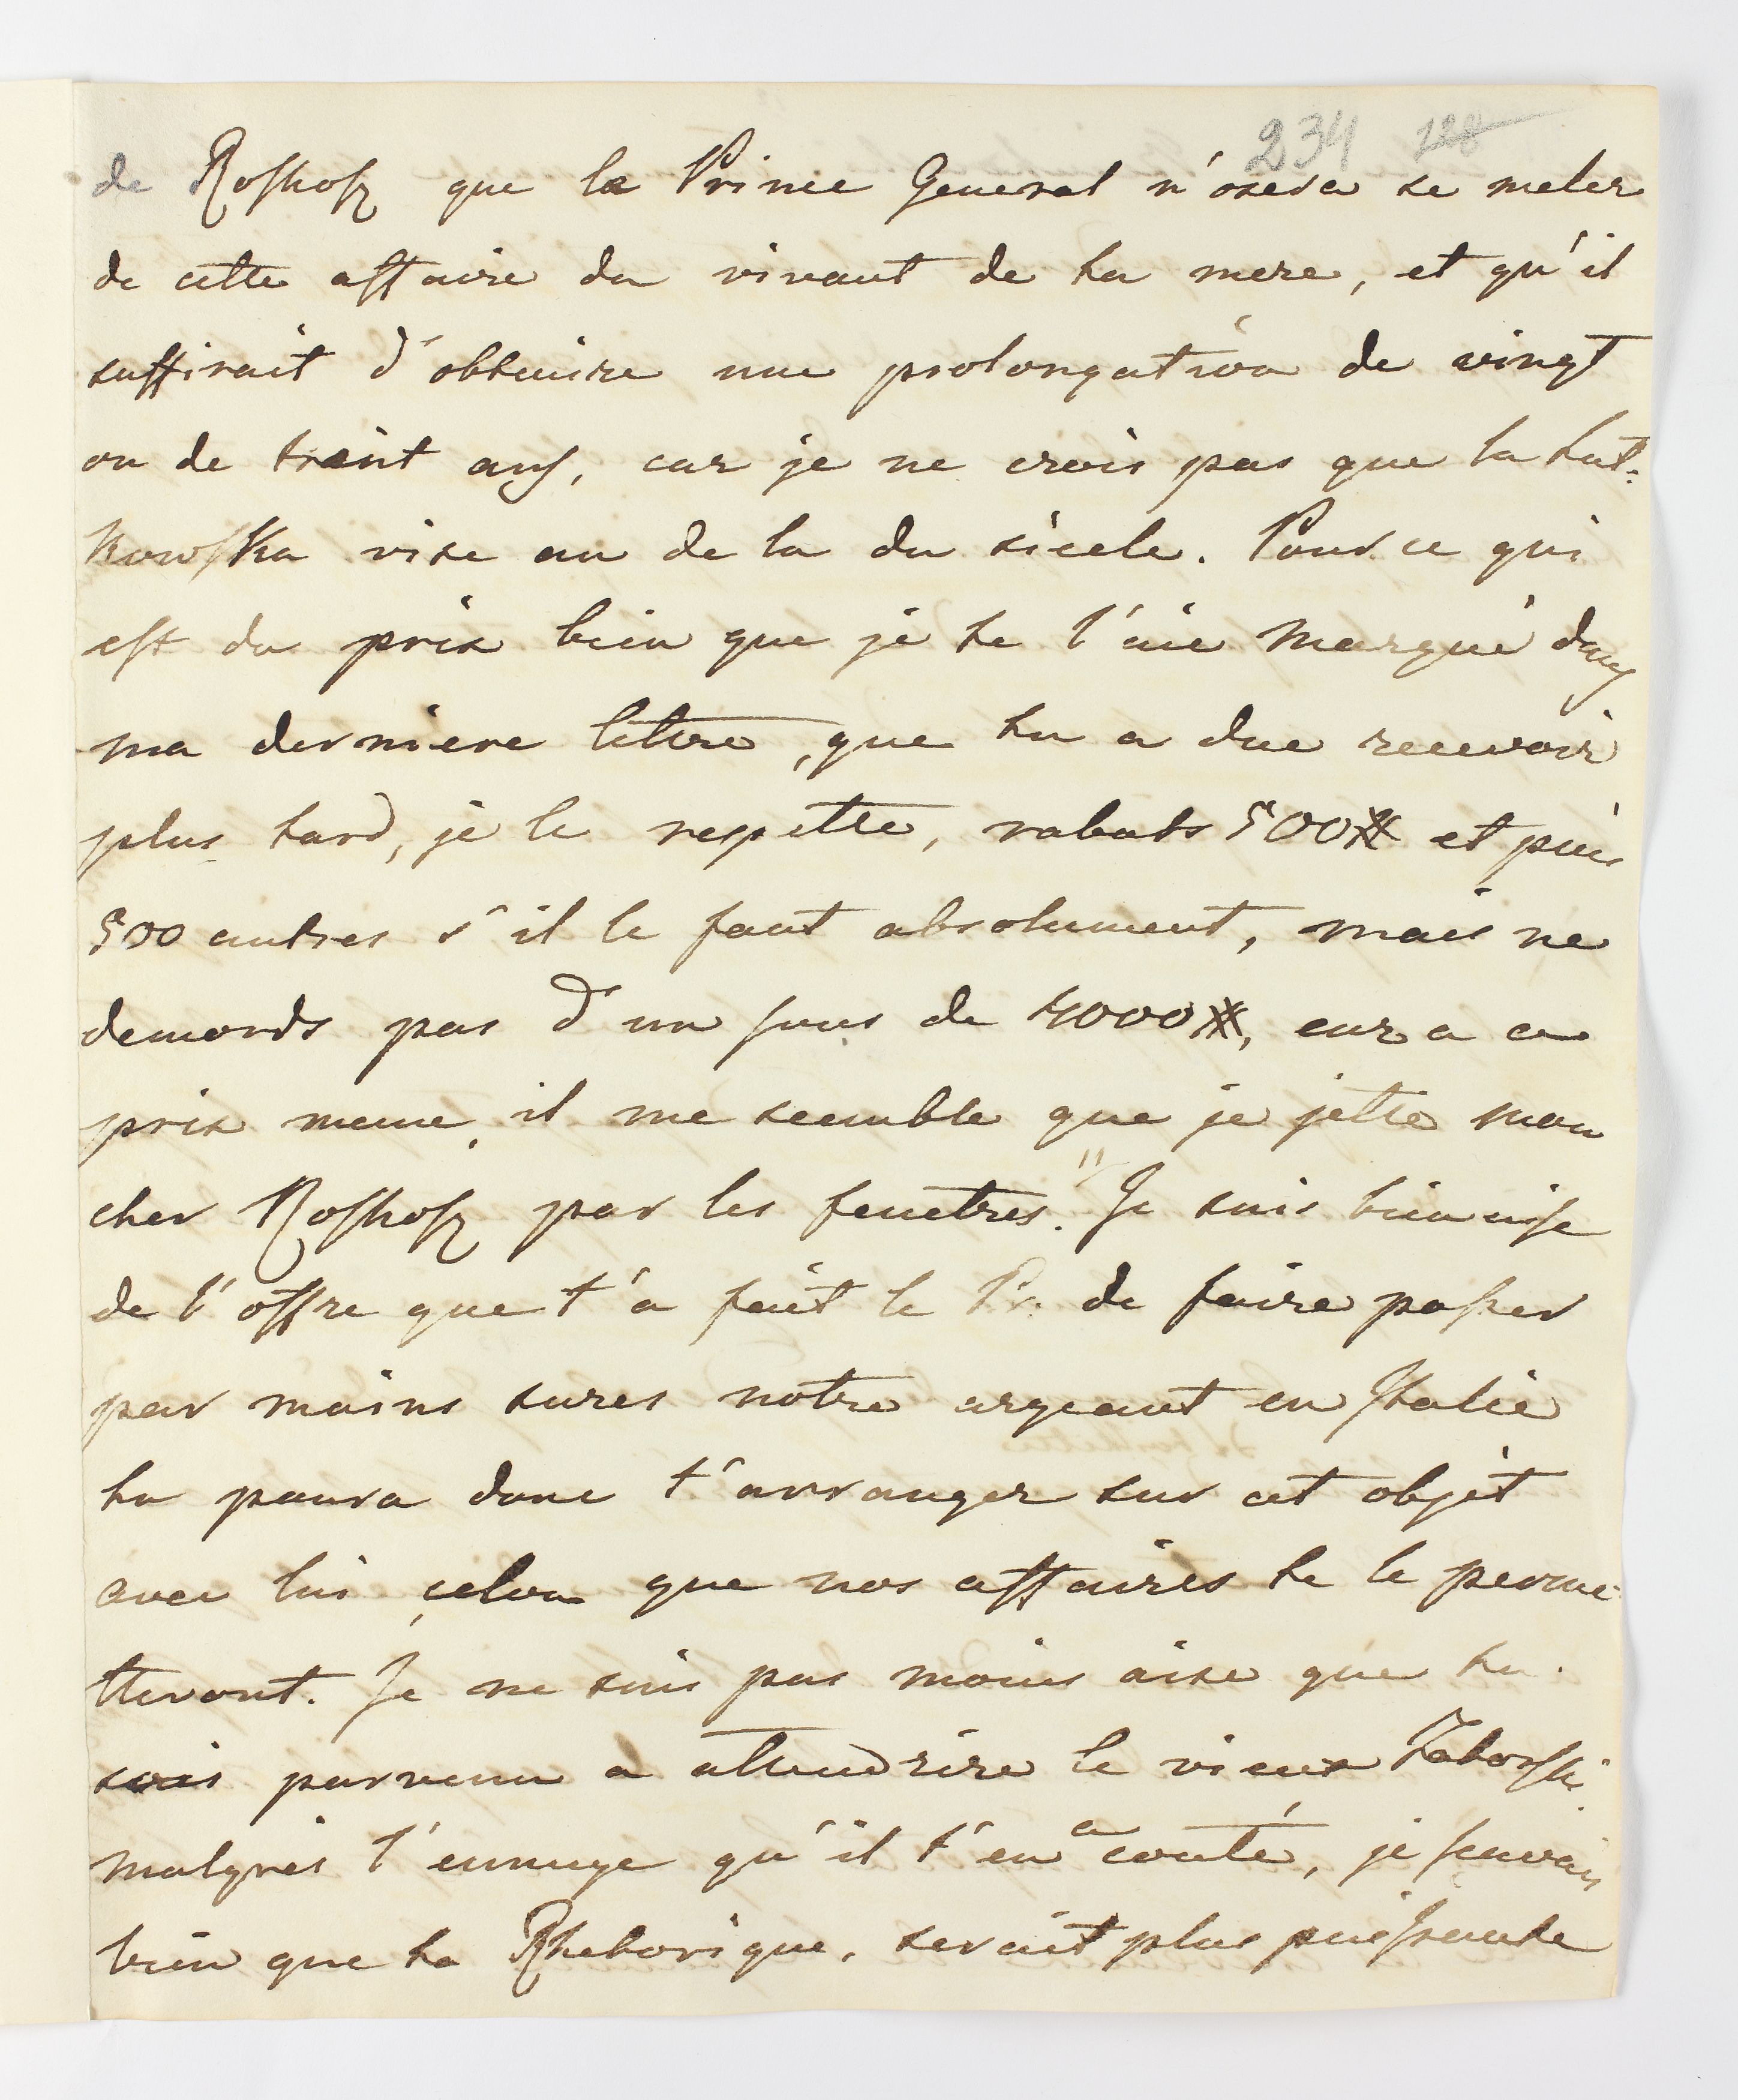 234 128
de Roskosz que le Prince General n'osera se meler
de cette affaire du vivant de ta mere, et qu'il
suffirait d'obtenire une prolongation de vingt
ou de trent ans, car je ne crois pas que la Rut:
kowska vise au de la du siecle. Pour ce qui
est du prix bien que je te l'aie marqué dans
ma derniere lettre, que tu a due recevoir
plus tard, je le repette, rabats 500# et puis
500 autres s'il le faut absolument, mais ne
demords pas d'un sous de 4000#, car a ce
prix meme, il me semble que je jette mon
cher Roskosz par les fenetres." Je suis bien aise
de l'offre que t'a fait le Pr. de faire passer
par mains sures notre argeant en Italie
tu poura donc t'arranger sur cet objet
avec lui selon que nos affaires te le perme
tteront. Je ne suis pas moins aise que tu
sois parvenu a attendrire le vieux
malgrés l'ennuye qu'il t'en a couté, je savais
bien que ta Rhetorique, serait plus puissante